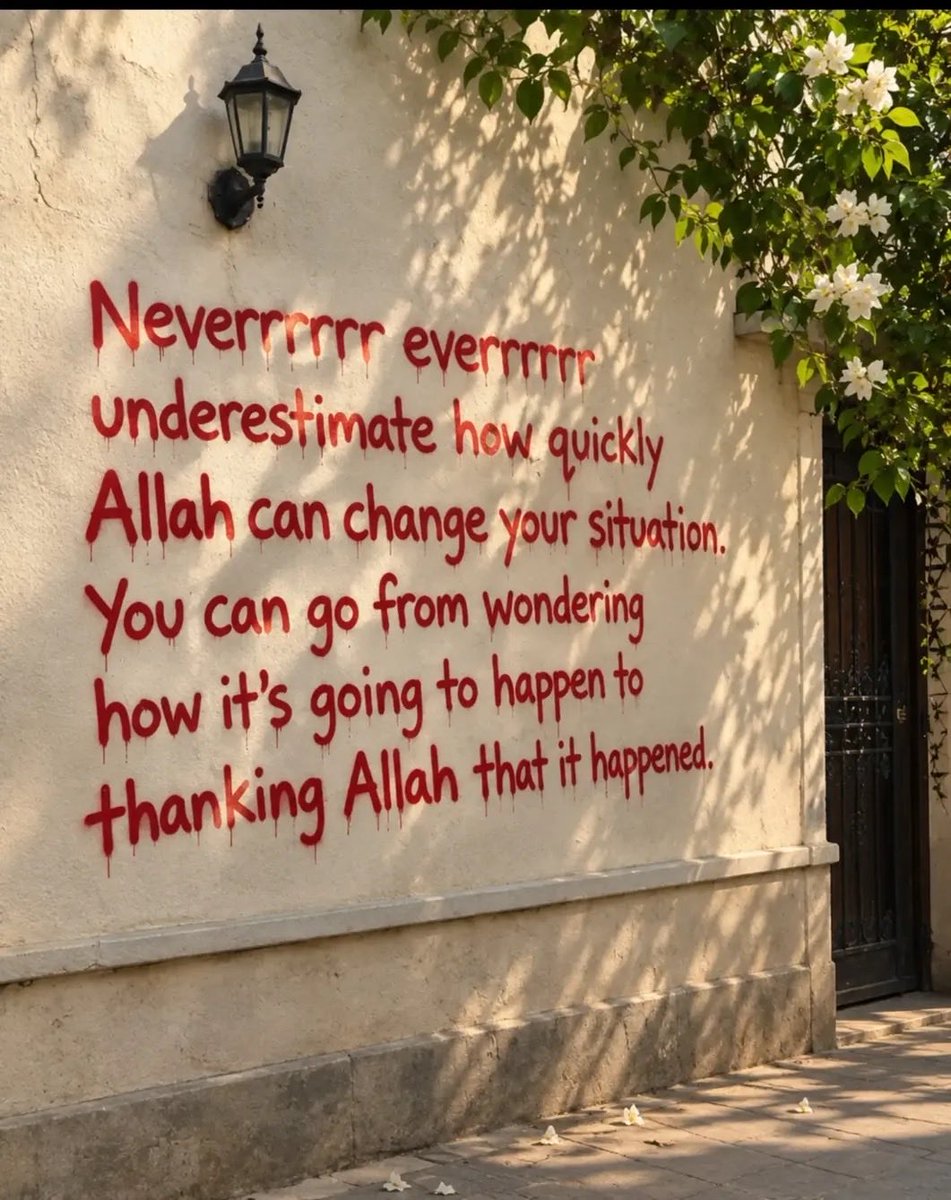 Neverrrrrr everrrrrr
underestimate how quickly
Allah can change your situation.
You can go from wondering
how it's going to happen to
thanking Allah that it happened.